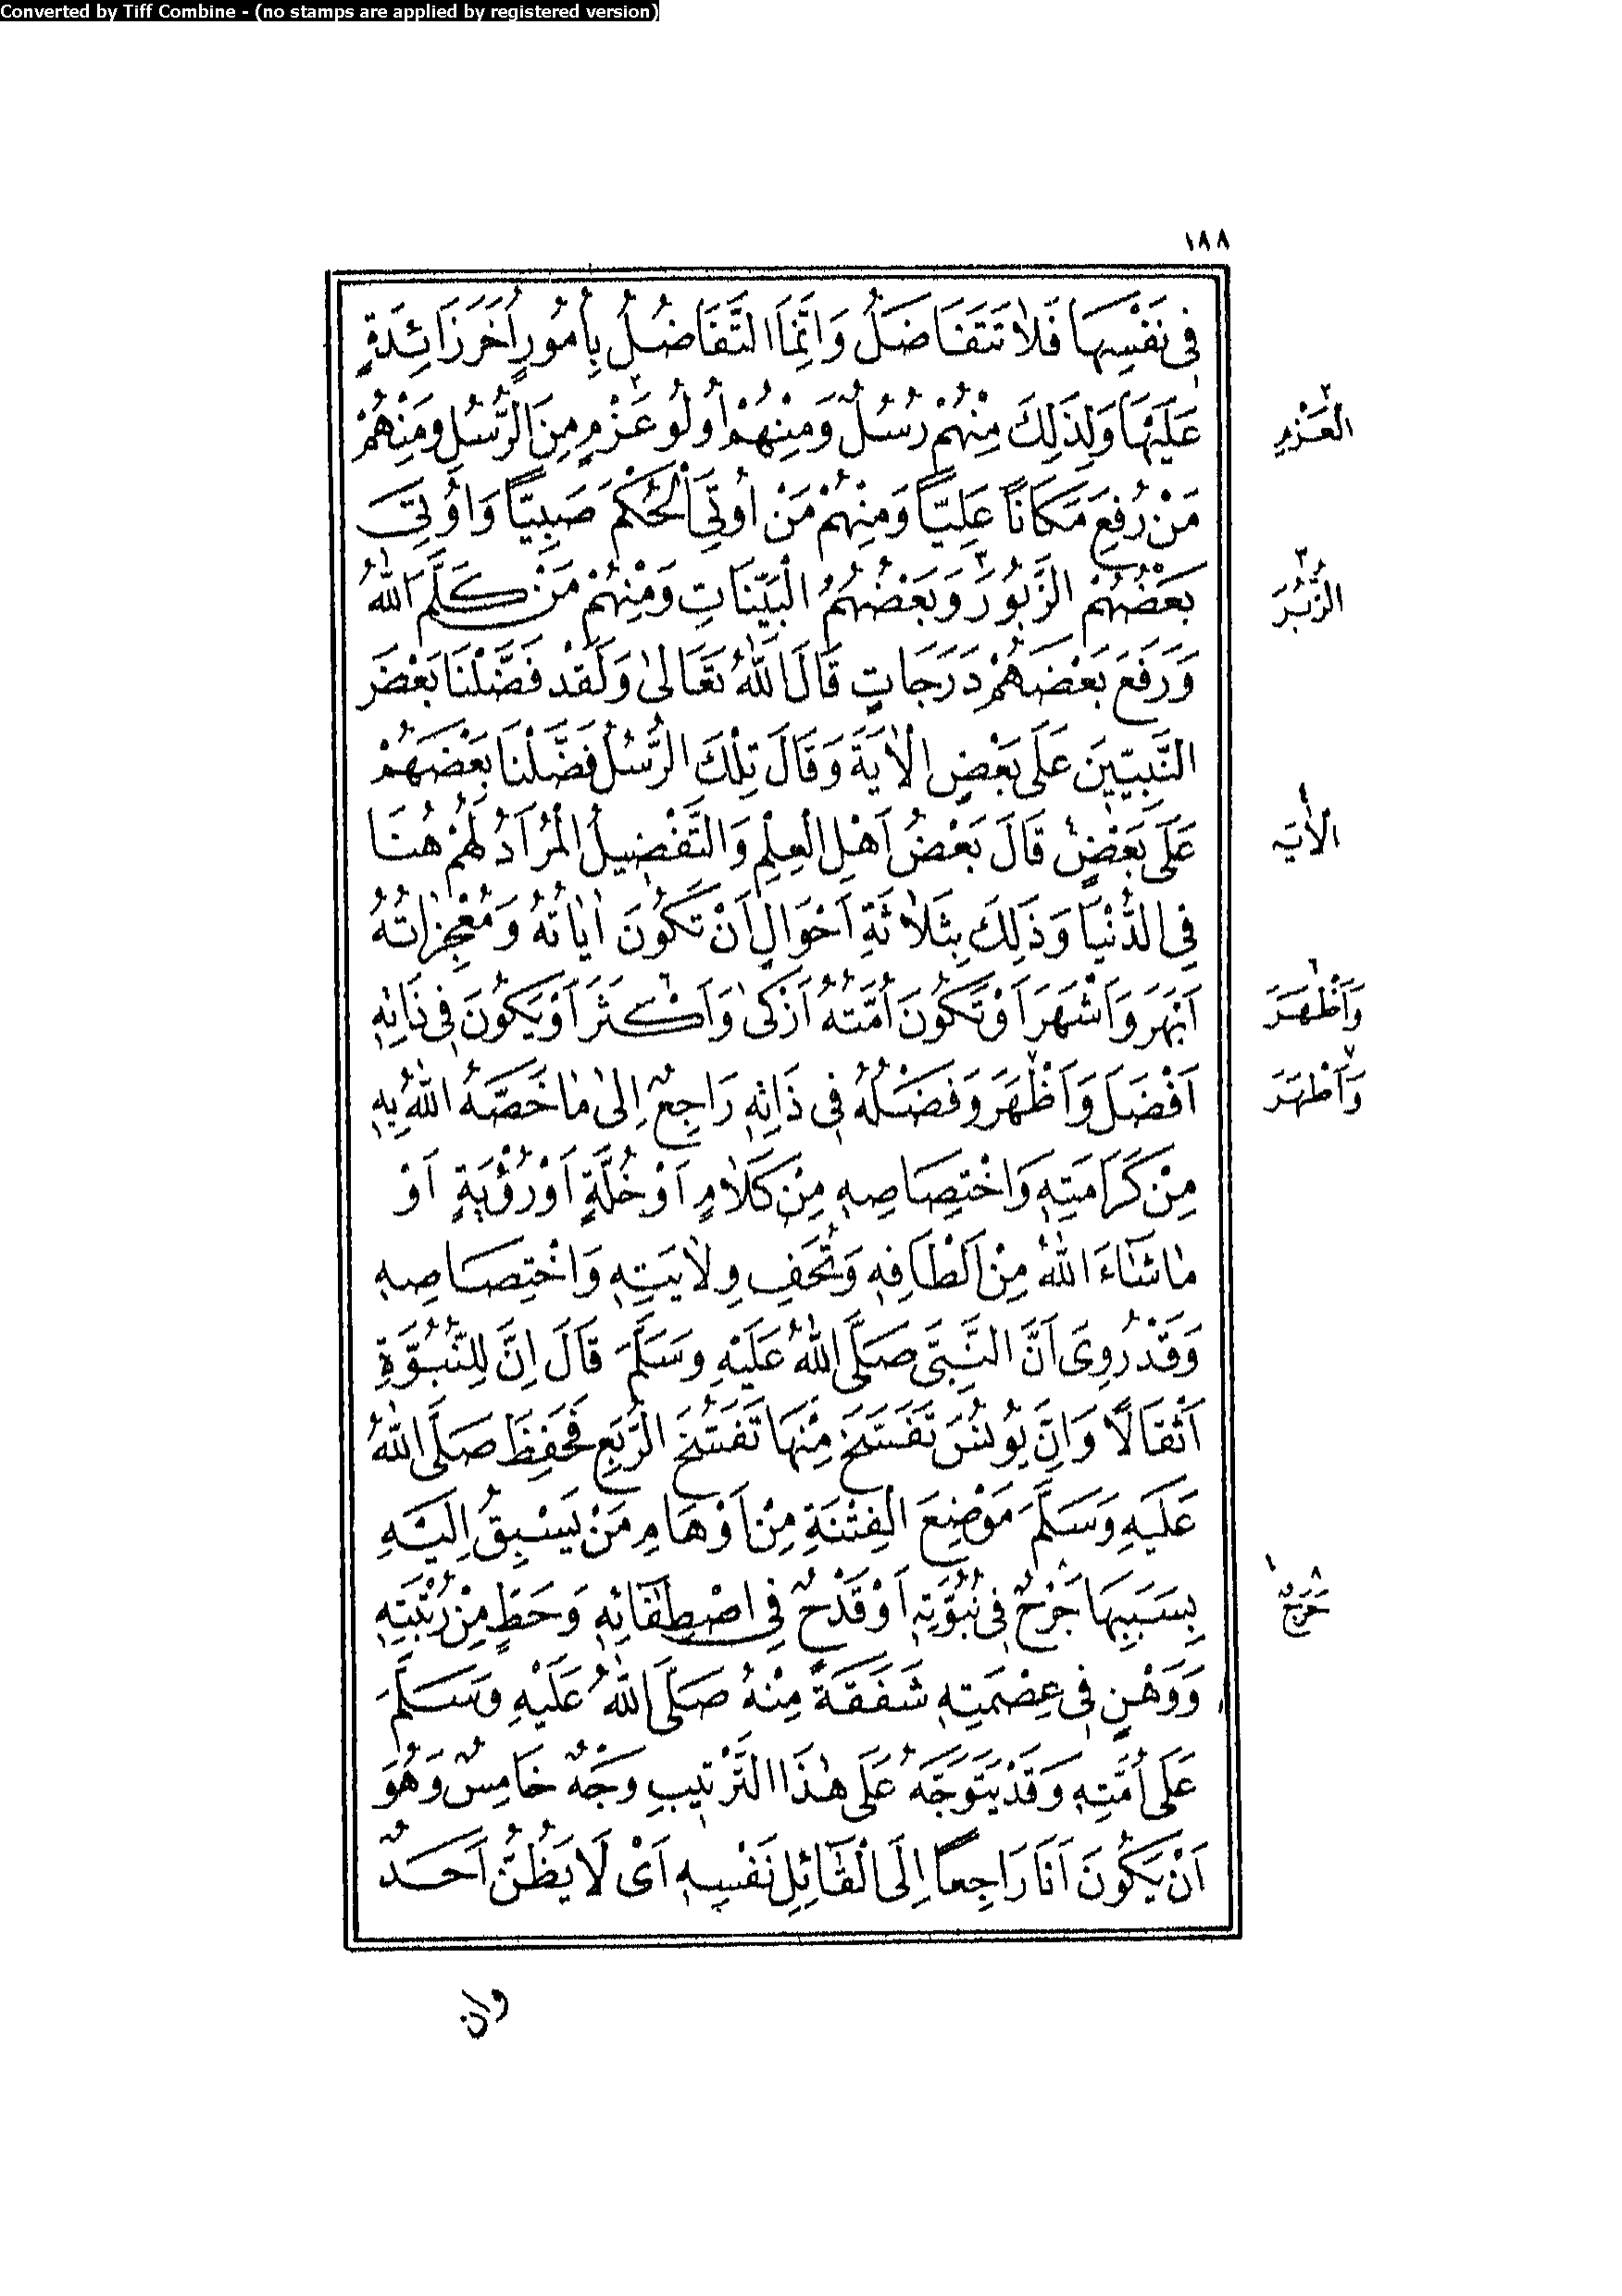 Converted by Tiff Combine - (no stamps are applied by registered version)
١٨٨
فِى نَفْسِهَا فَلَا تَتَفَاضَلُ وَاِنَّمَا التَّفَاضُلُ بِأُمُورٍ أُخَرَ زَائِدَةٍ
عَلَيْهَا وَلِذَلِكَ مِنْهُمْ رُسُلٌ وَمِنْهُمْ أُولُو عَزْمٍ مِنَ الرُّسُلِ وَمِنْهُمْ
الْعَزْمِ
مَنْ رُفِعَ مَكَانًا عَلِيًّا وَمِنْهُمْ مَنْ أُوتِىَ الْحُكْمَ صَبِيًّا وَأُوتِىَ
بَعْضُهُمْ الزَّبُورَ وَبَعْضُهُمُ الْبَيِّنَاتِ وَمِنْهُمْ مَنْ كَلَّمَ اللهُ
الزُّبُرَ
وَرَفَعَ بَعْضَهُمْ دَرَجَاتٍ قَالَ اللهُ تَعَالىٰ وَلَقَدْ فَضَّلْنَا بَعْضَ
النَّبِيِّينَ عَلَى بَعْضٍ الْاٰيَةَ وَقَالَ تِلْكَ الرُّسُلُ فَضَّلْنَا بَعْضَهُمْ
عَلَى بَعْضٍ قَالَ بَعْضُ اَهْلِ الْعِلْمِ وَالتَّفْضِيلُ الْمُرَادُ لَهُمْ هُنَا
الْاٰيَه
فِى الدُّنْيَا وَذَلِكَ بِثَلَاثَةِ اَحْوَالٍ اَنْ تَكُونَ اٰيَاتُهُ وَمُعْجِزَاتُهُ
اَبْهَرَ وَاَشْهَرَ اَوْ تَكُونَ اُمَّتُهُ اَزْكىٰ وَاَكْثَرَ اَوْ يَكُونَ فِى ذَاتِهِ
وَاَظْهَرَ
اَفْضَلَ وَاَظْهَرَ وَفَضْلُهُ فِى ذَاتِهِ رَاجِعٌ اِلىٰ مَا خَصَّهُ اللهُ بِهِ
وَاَطْهَرَ
مِنْ كَرَامَتِهِ وَاخْتِصَاصِهِ مِنْ كَلَامٍ اَوْ خُلَّةٍ اَوْ رُؤْيَةٍ اَوْ
مَا شَاءَ اللهُ مِنْ اَلْطَافِهِ وَتُحَفِ وِلَايَتِهِ وَاخْتِصَاصِهِ
وَقَدْ رُوِىَ اَنَّ النَّبِىَّ صَلَّى اللهُ عَلَيْهِ وَسَلَّمَ قَالَ اِنَّ لِلنُّبُوَّةِ
اَثْقَالًا وَاِنَّ يُونُسَ تَفَسَّخَ مِنْهَا تَفَسُّخَ الرُّبَعِ فَحَفِظَ صَلَّى اللهُ
عَلَيْهِ وَسَلَّمَ مَوْضِعَ الْفِتْنَةِ مِنْ اَوْهَامِ مَنْ يَسْبِقُ اِلَيْهِ
بِسَبَبِهَا جَرْحٌ فِى نُبُوَّتِهِ اَوْ قَدْحٌ فِى اصْطِفَائِهِ وَحَطٍّ مِنْ رُتْبَتِهِ
حَرَجٌ
وَوَهْنٍ فِى عِصْمَتِهِ شَفَقَةً مِنْهُ صَلَّى اللهُ عَلَيْهِ وَسَلَّمَ
عَلَى اُمَّتِهِ وَقَدْ يَتَوَجَّهُ عَلَى هٰذَا التَّرْتِيبِ وَجْهٌ خَامِسٌ وَهُوَ
اَنْ يَكُونَ اَنَا رَاجِعًا اِلَى الْقَائِلِ نَفْسِهِ اَىْ لَا يَظُنُّ اَحَدٌ
وان